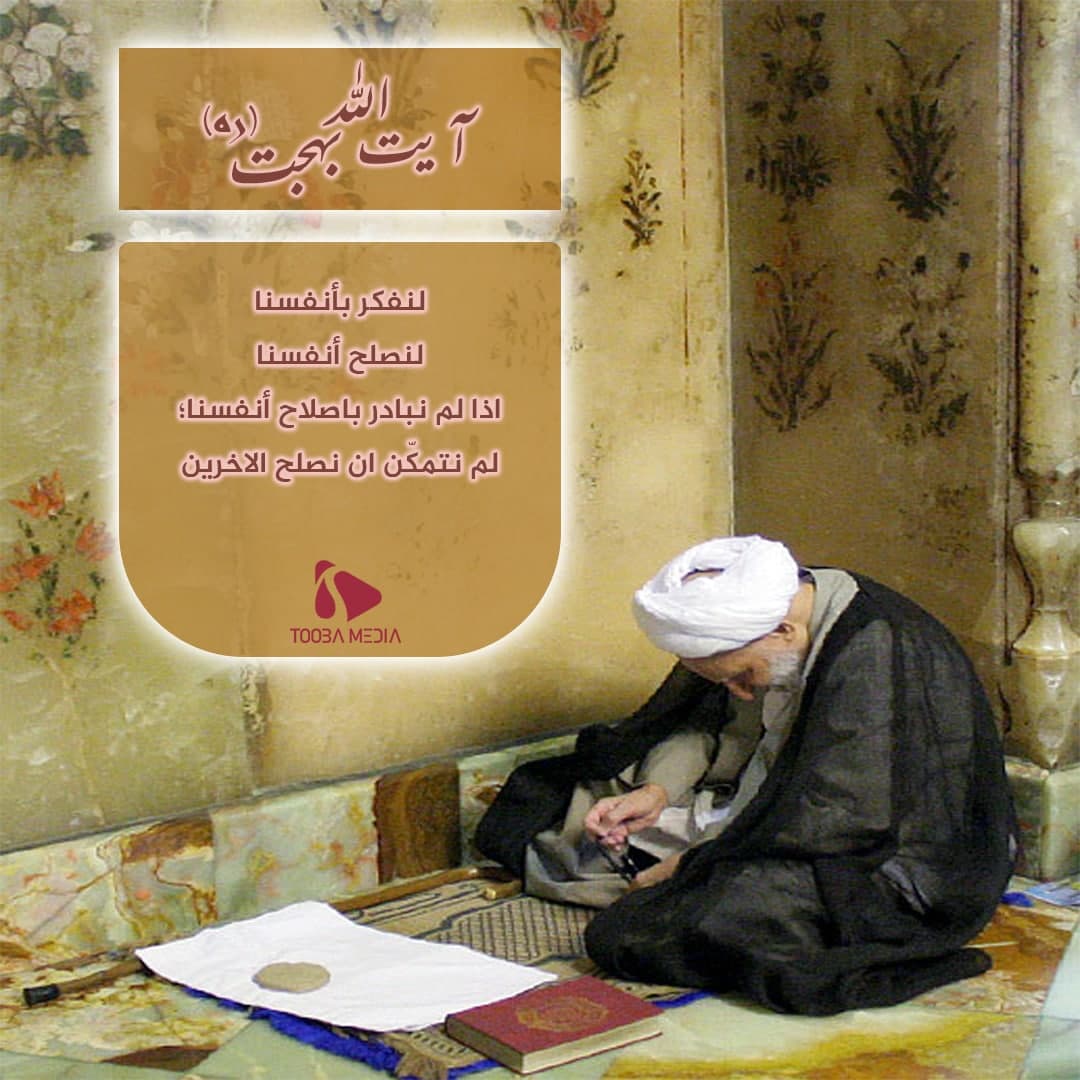 آیت الله بهجت (ره)
لنفكر بأنفسنا
لنصلح أنفسنا
اذا لم نبادر باصلاح أنفسنا؛
لم نتمكّن ان نصلح الاخرين
TOOBA MEDIA